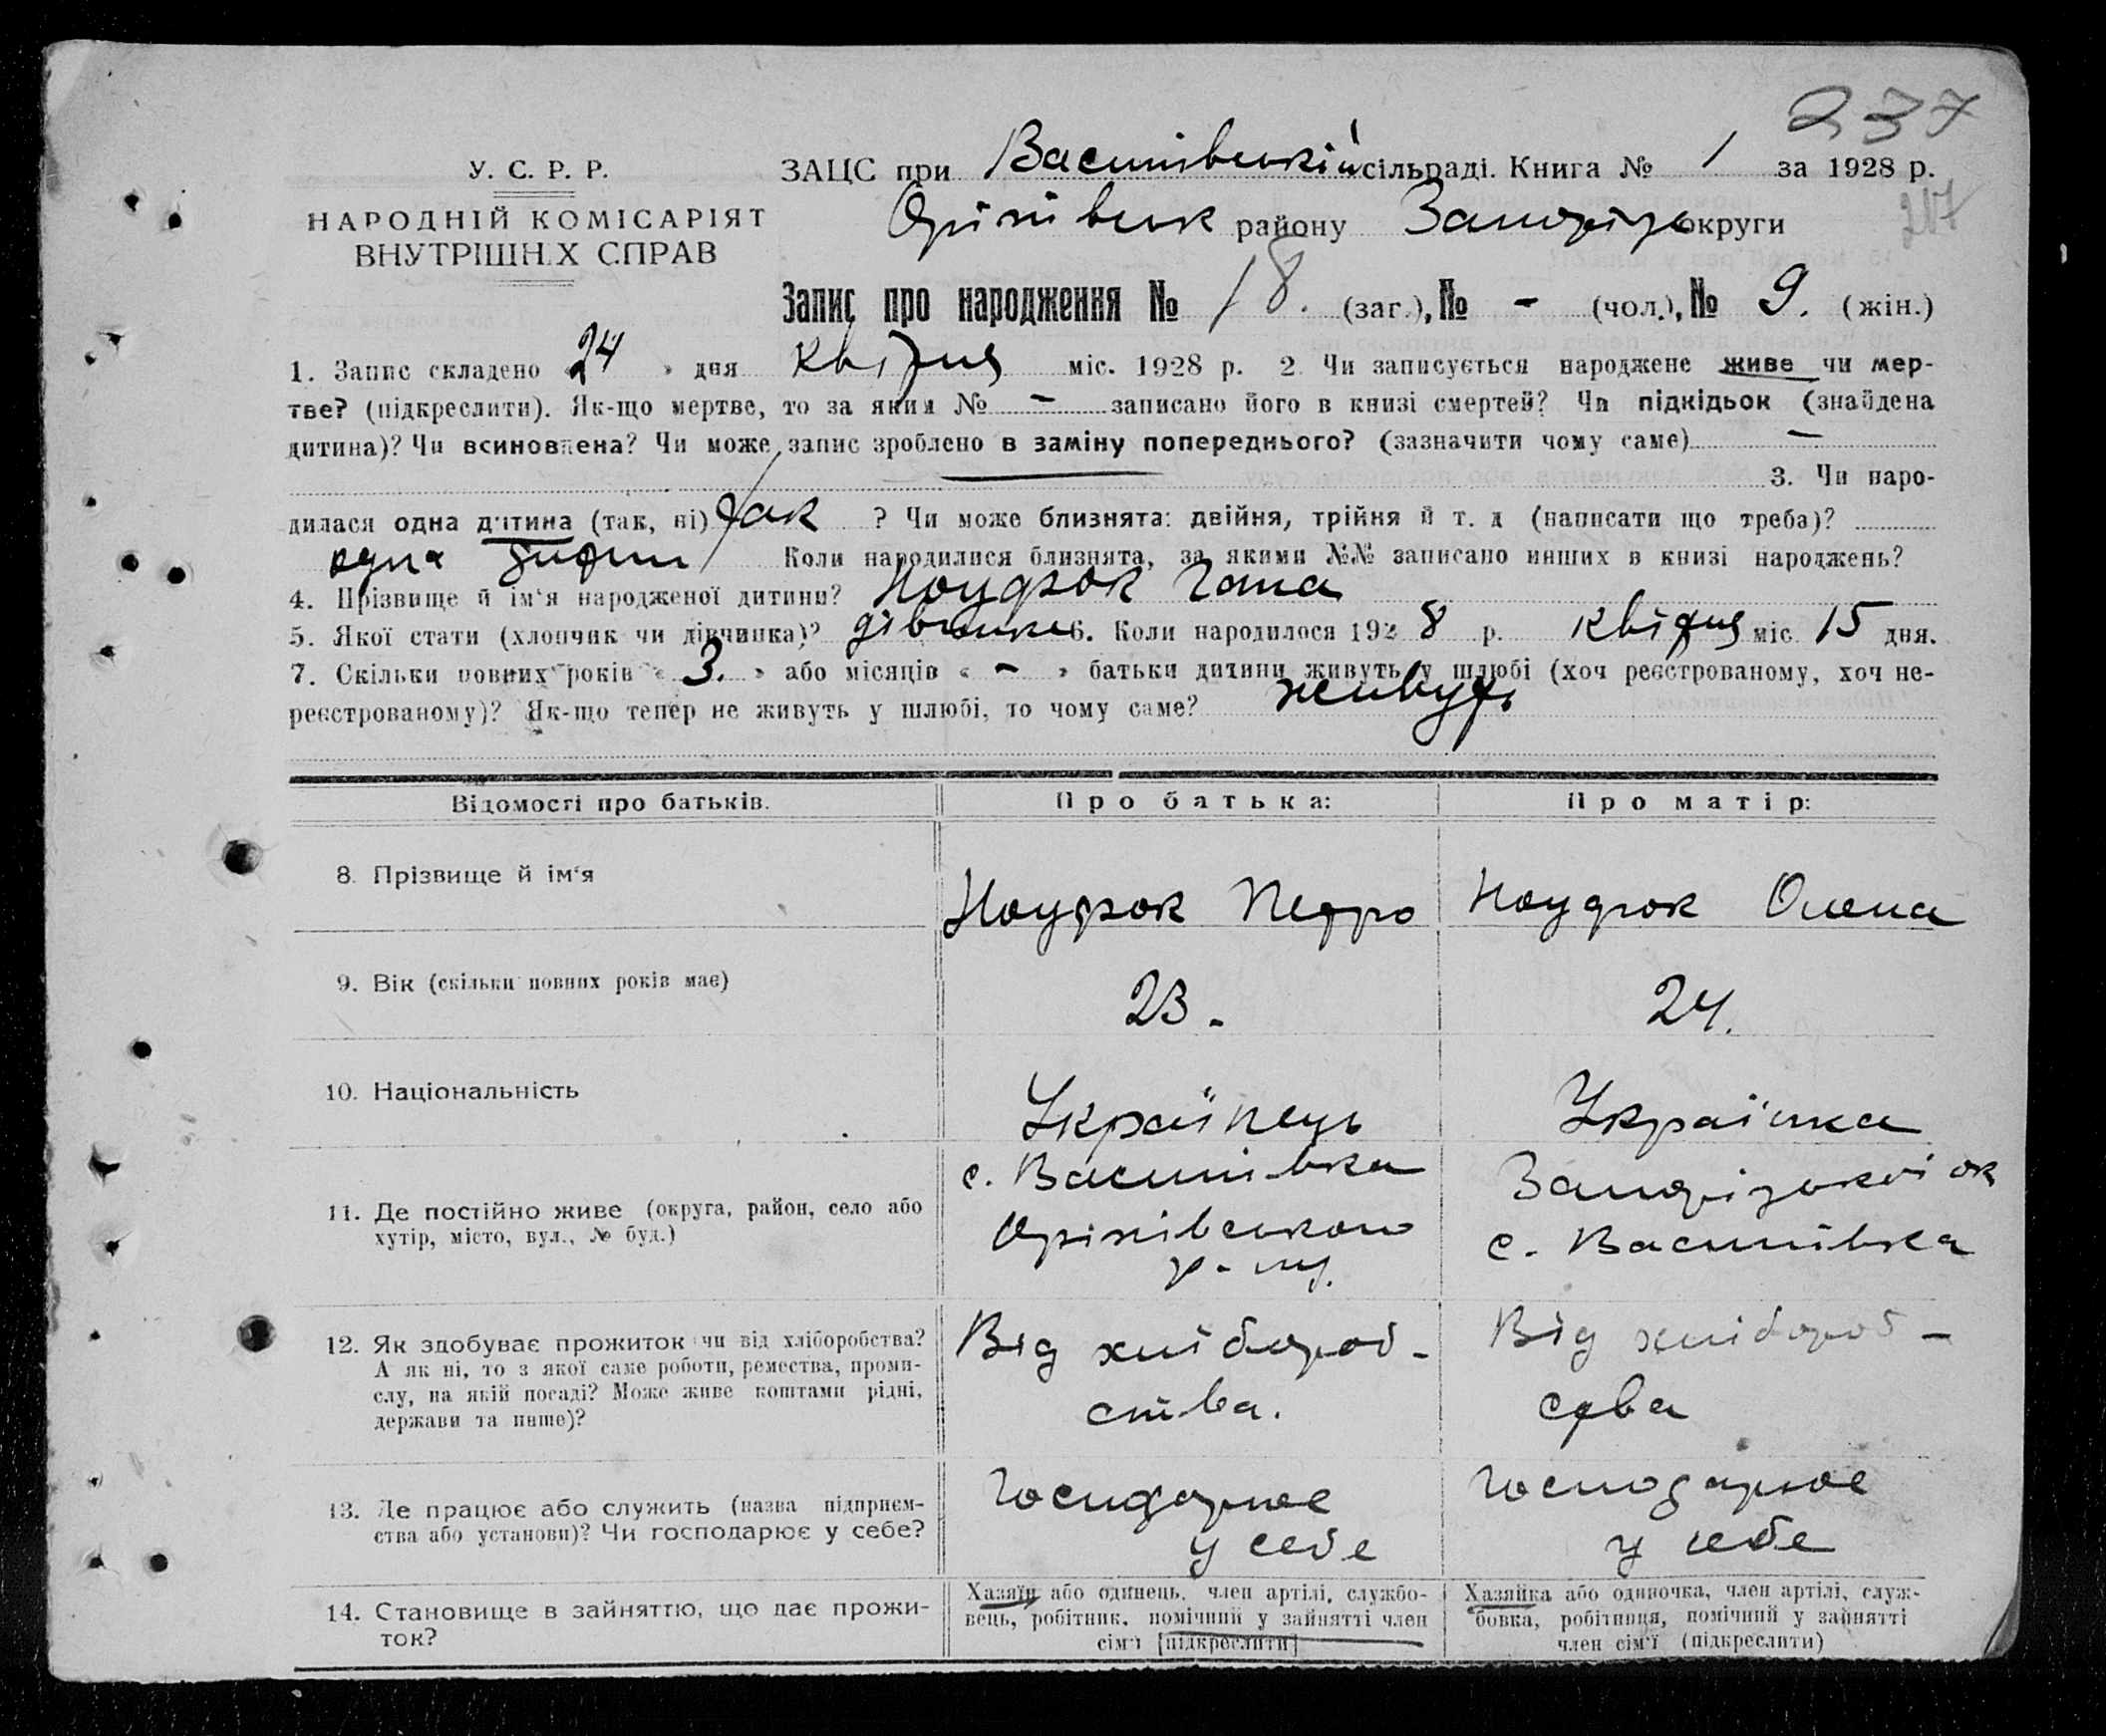 237
У. С. Р. Р.
НАРОДНІЙ КОМІСАРІЯТ
ВНУТРІШНІХ СПРАВ
ЗАЦС при Василівській сільраді. Книга № 1 за 1928 р.
Оріхівськ району Запорізьк округи 217
Запис про народження № 18. (заг.), № - (чол.), № 9. (жін.)
1. Запис складено « 24 » дня квітня міс. 1928 р. 2 Чи записується народжене живе чи мер-
тве? (підкреслити). Як-що мертве, то за яким № - записано його в книзі смертей? Чи підкідьок (знайдена
дитина)? Чи всиновлена? Чи може запис зроблено в заміну попереднього? (зазначити чому саме) -
3. Чи наро-
дилася одна дитина (так, ні) так ? Чи може близнята: двійня, трійня й т. д (написати що треба)?
одна дитин Коли народилися близнята, за якими №№ записано инших в книзі народжень?
4. Прізвище й ім'я народженої дитини? Ноудрок Гана
5. Якої стати (хлопчик чи дівчинка)? дівчинка 6. Коли народилося 1928 р. квітня міс. 15 дня.
7. Скільки повних років « 3. » або місяців « - » батьки дитини живуть у шлюбі (хоч реєстрованому, хоч не-
реєстрованому)? Як-що тепер не живуть у шлюбі, то чому саме? живуть
Відомості про батьків. Про батька: Про матір:
8. Прізвище й ім'я
Ноудрок Петро Ноудрок Олена
9. Вік (скільки повних років має)
23. 24.
10. Національність
Українець Українка
11. Де постійно живе (округа, район, село або
хутір, місто, вул., № буд.)
с. Василівка Запорізької ок
Оріхівського с. Василівка
р-ну.
12. Як здобуває прожиток чи від хліборобства?
А як ні, то з якої саме роботи, ремества, проми-
слу, на якій посаді? Може живе коштами рідні,
держави та инше)?
Від хлібороб- Від хлібороб-
ства. ства
13. Де працює або служить (назва підприєм-
ства або установи)? Чи господарює у себе?
Господарює Господарює
у себе у себе
14. Становище в зайняттю, що дає прожи-
ток?
Хазяїн або одинець, член артілі, службо-
вець, робітник, помічний у зайнятті член
сім'ї [підкреслити]
Хазяйка або одиночка, член артілі, служ-
бовка, робітниця, помічний у зайнятті
член сім'ї (підкреслити)